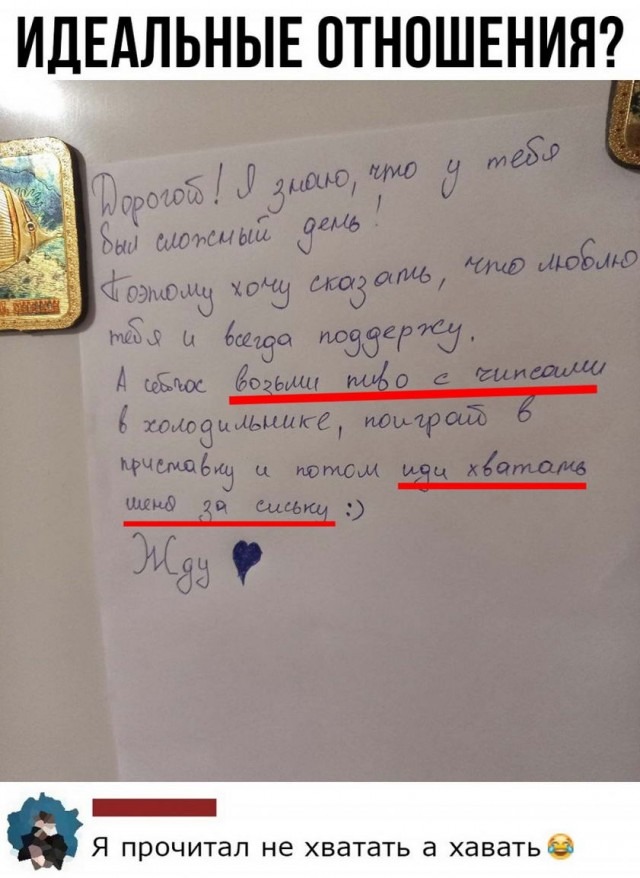 ИДЕАЛЬНЫЕ ОТНОШЕНИЯ?
Дорогой! Я знаю, что у тебя
был сложный день!
Поэтому хочу сказать, что люблю
тебя и всегда поддержу.
А сейчас возьми пиво с чипсами
в холодильнике, поиграй в
приставку и потом иди хватать
меня за сиську :)
Жду
Я прочитал не хватать а хавать😂